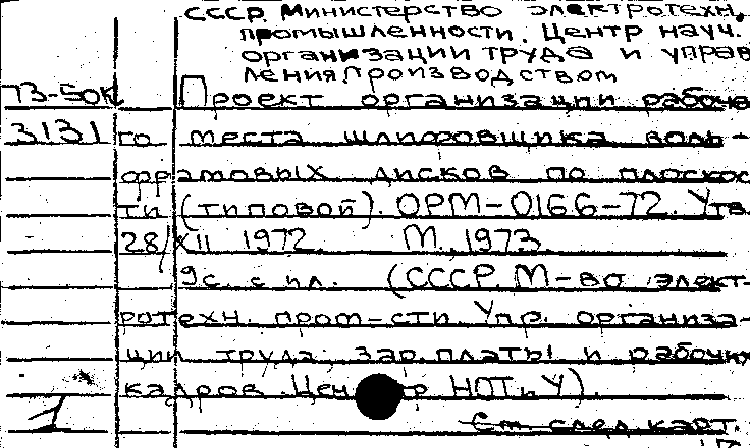 СССР. Министерство электротехн.
промышленности. Центр науч.
организации труда и управ
ления производством
73-50К Проект организации рабоче
3131 го места шлифовщика воль-
фрамовых дисков по плоскос
ти (типовой). ОРМ-0166-72. Утв.
28/XII 1972. М., 1973.
9с. с ил. (СССР. М-во элект-
ротехн. пром-сти. Упр. организа-
ции труда, зар.платы и рабочих
кадров. Центр НОТ и У).
См след карт.